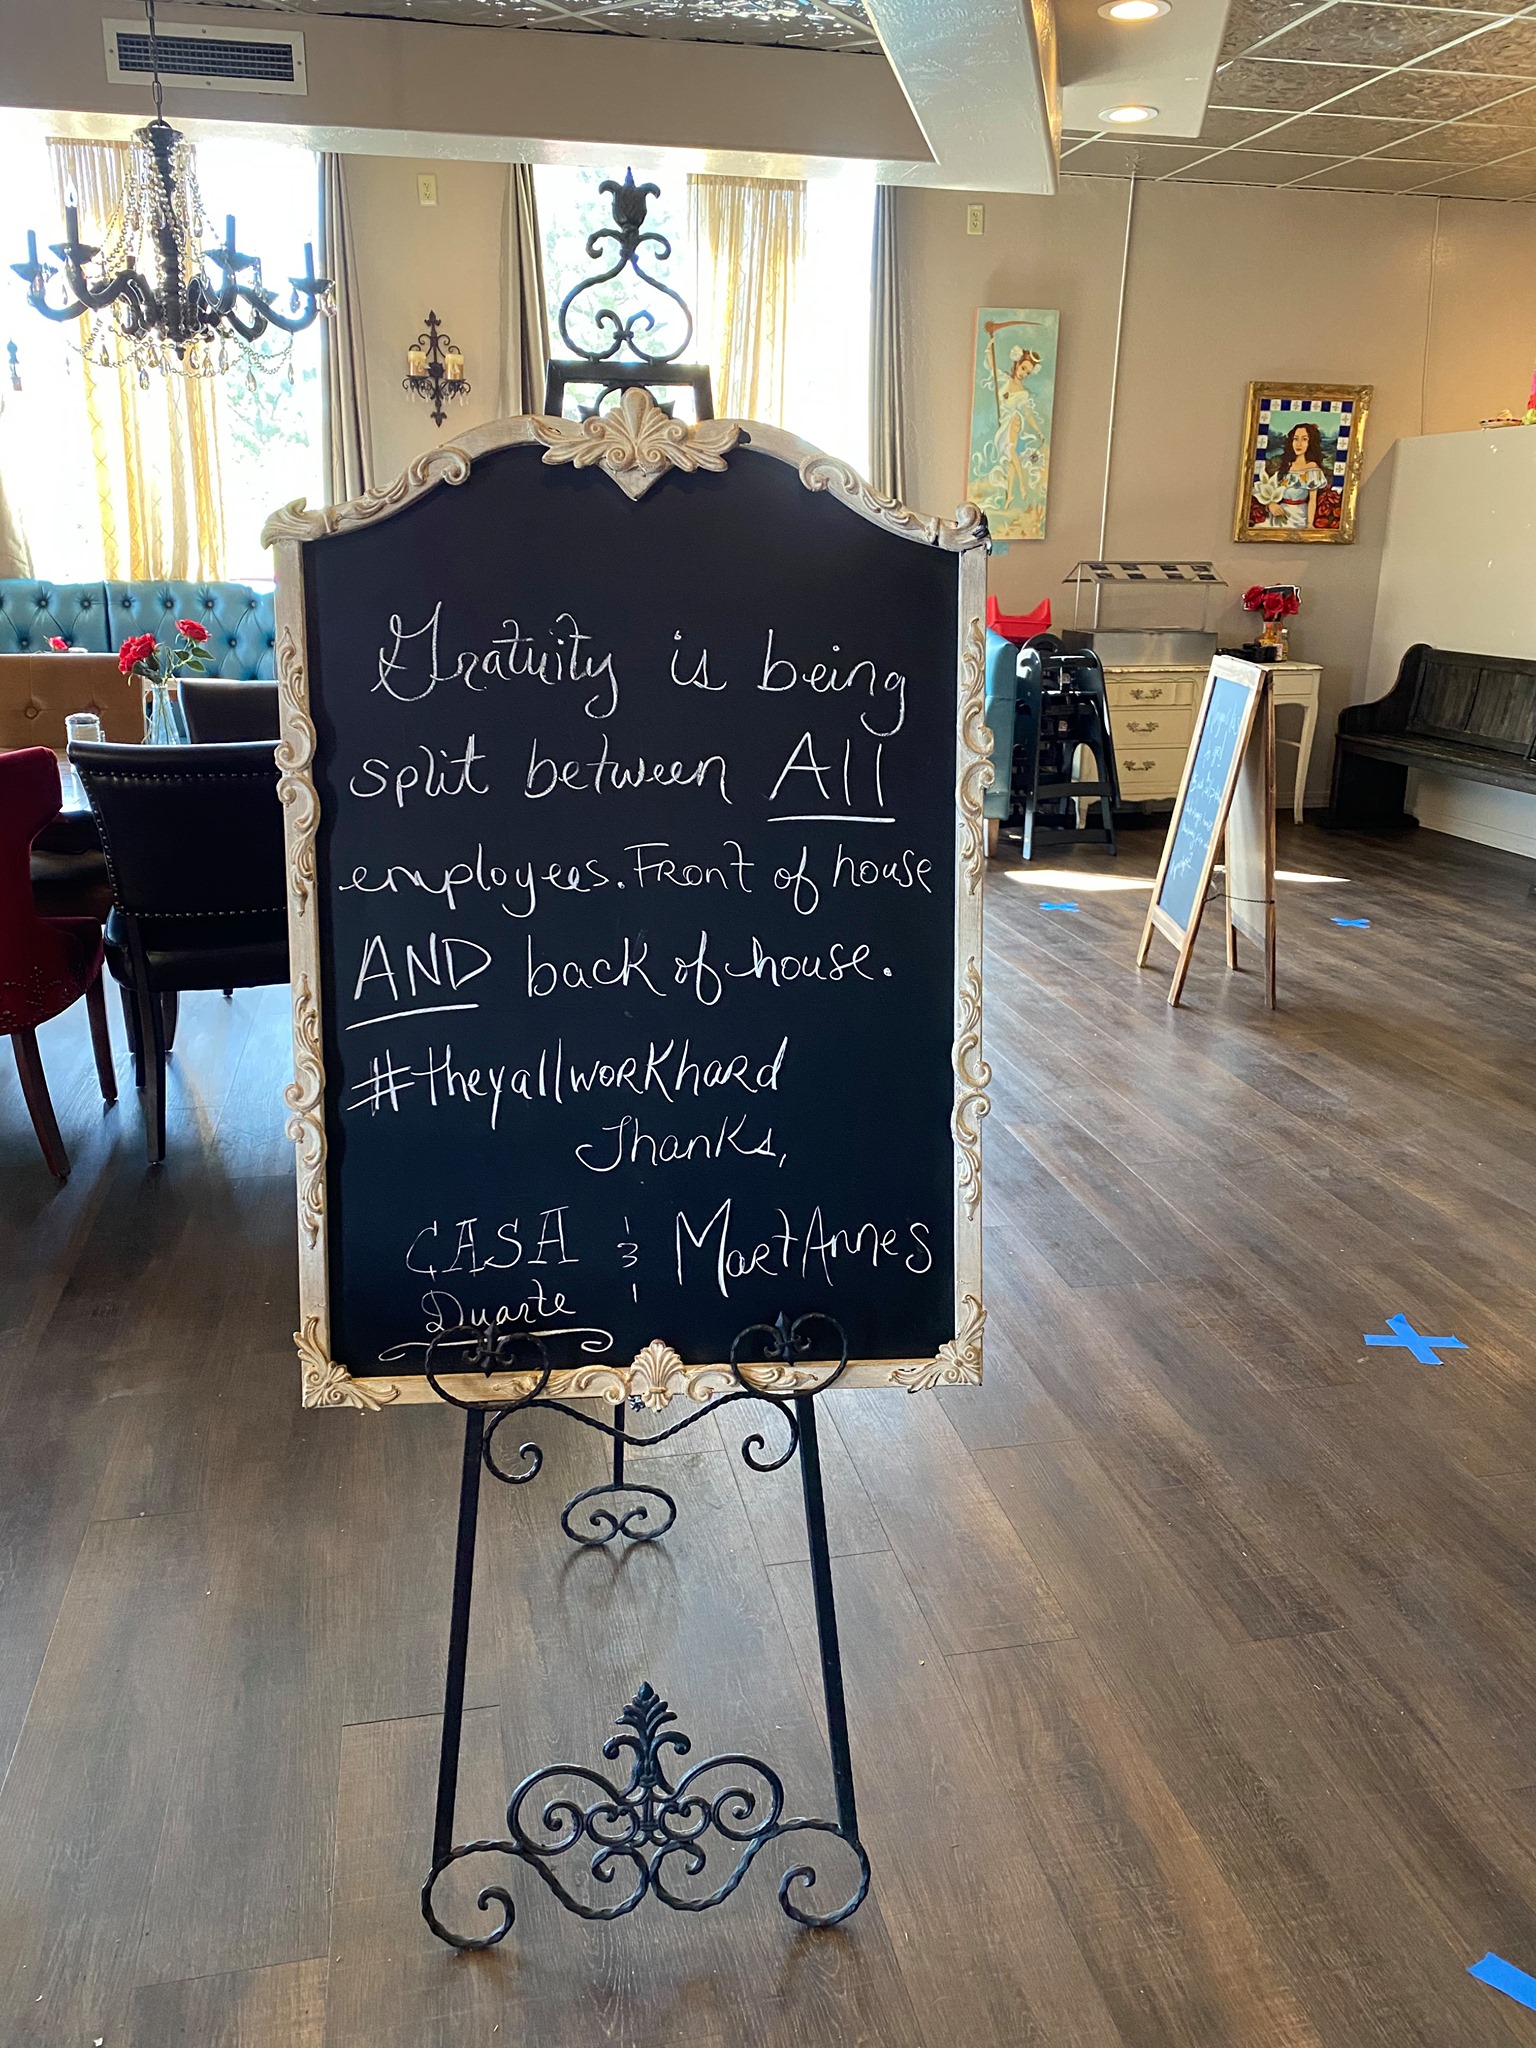 Gratuity is being
split between All
employees. Front of house
AND back of house.
#theyallworkhard
Thanks,
CASA & MartAnnes
Duarte